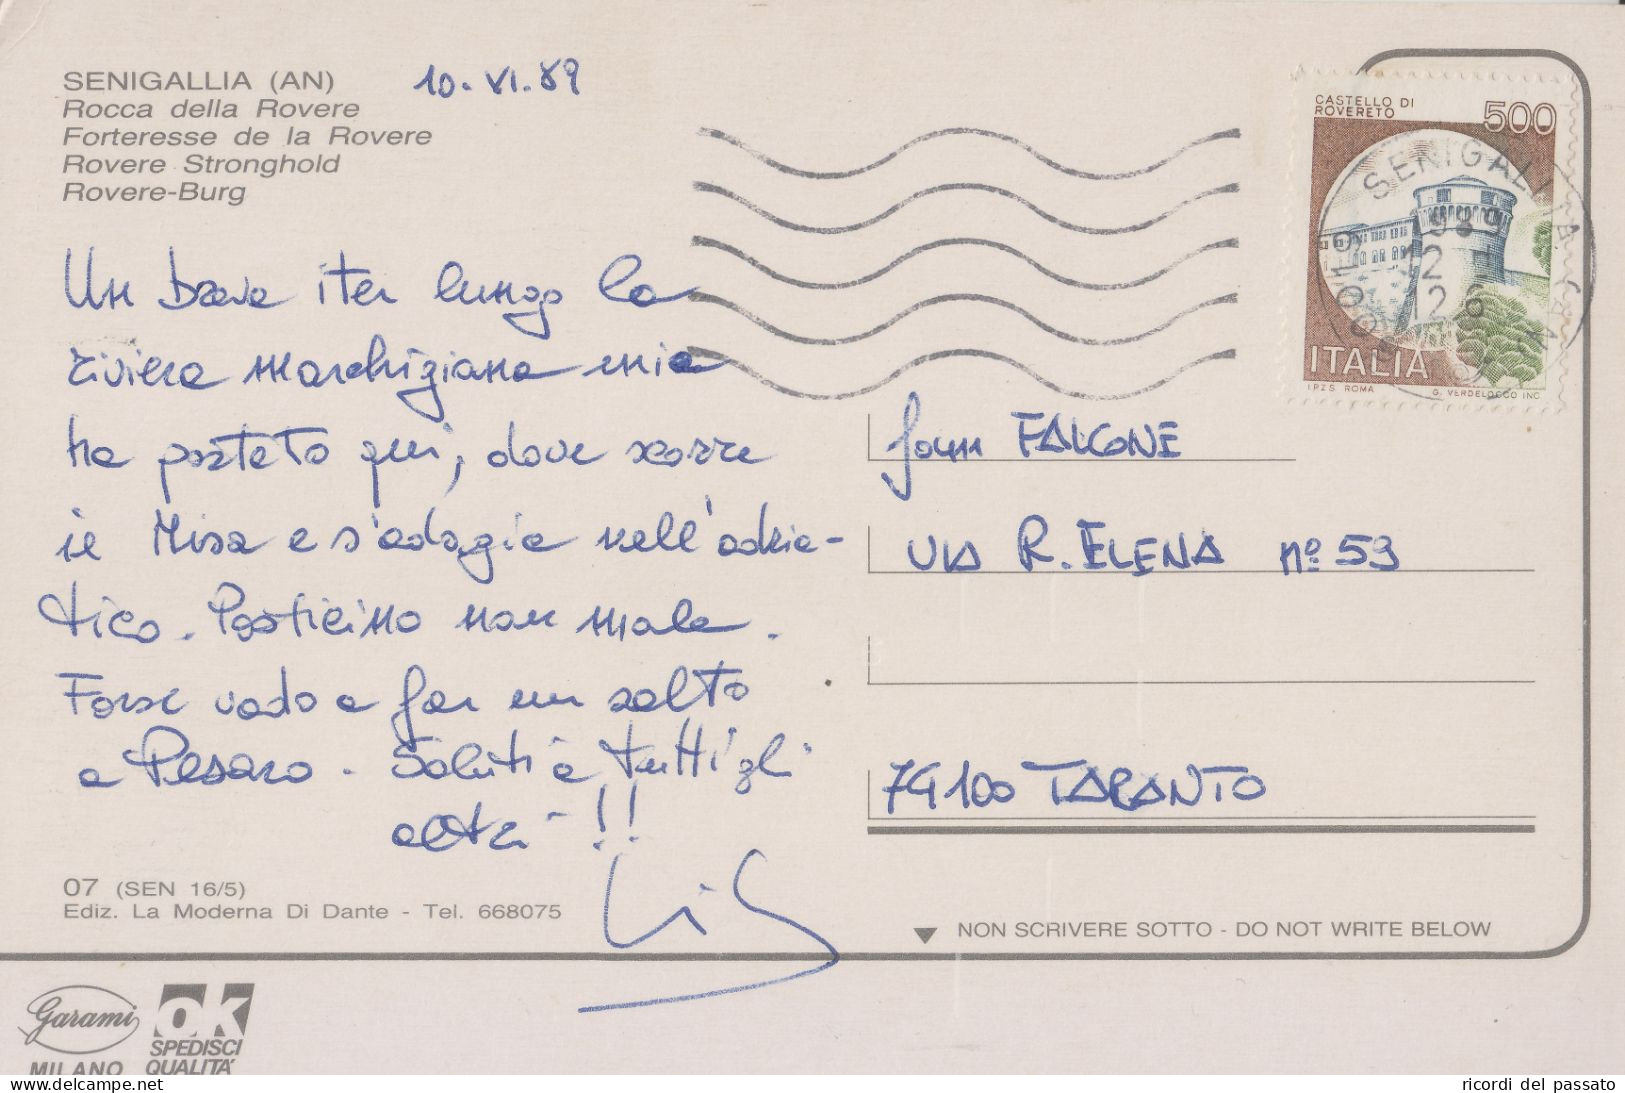 SENIGALLIA (AN)
Rocca della Rovere
Forteresse de la Rovere
Rovere Stronghold
Rovere-Burg
10.VI.89
CASTELLO DI
ROVERETO
500
ITALIA
I.P.Z.S. ROMA
G. VERDELOCCO INC.
SENIGALLIA
1989
12
12 6
60019
Un breve iter lungo la
riviera marchigiana mia
ha portato qui, dove scorre
il Misa e s'adagia nell'adria-
tico. Posticino non male.
Forse vado a far un salto
a Pesaro. Saluti a tutti gli
altri!!
FALCONE
VIA R. ELENA nº 59
74100 TARANTO
07 (SEN 16/5)
Ediz. La Moderna Di Dante - Tel. 668075
NON SCRIVERE SOTTO - DO NOT WRITE BELOW
Garami
MILANO
OK
SPEDISCI
QUALITA'
www.delcampe.net
ricordi del passato